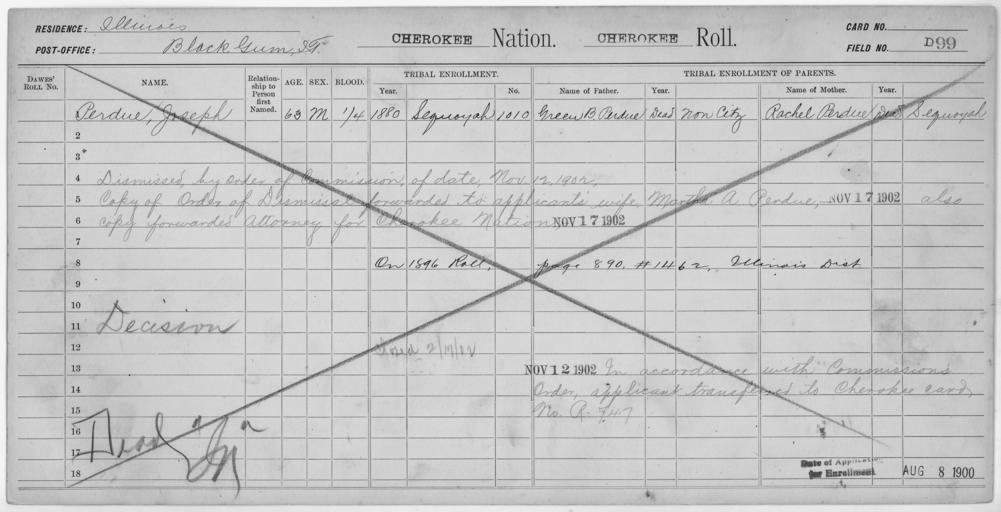 RESIDENCE: Illinois
POST-OFFICE: Black Gum, I.T.
CHEROKEE Nation. CHEROKEE Roll.
CARD NO.
FIELD NO. D99
DAWES' ROLL NO. NAME. Relationship to Person first Named. AGE. SEX. BLOOD. TRIBAL ENROLLMENT. Year. No. TRIBAL ENROLLMENT OF PARENTS. Name of Father. Year. Name of Mother. Year.
Perdue, Joseph 63 M 1/4 1880 Sequoyah 1010 Green B. Perdue Dead Non Citz Rachel Perdue Dead Sequoyah
2
3*
4 Dismissed, by order of Commission, of date, Nov. 12, 1902.
5 Copy of Order of Dismissal forwarded to applicant's wife, Martha A Perdue, NOV 17 1902 also
6 copy forwarded Attorney for Cherokee Nation NOV 17 1902
7
8 On 1896 Roll, page 890, #1462, Illinois Dist
9
10
11 Decision
12 2/17/02
13 NOV 12 1902 In accordance with Commission's
14 Order, applicant transferred to Cherokee card
15 No. R-747
16 Dead "
17
18
Date of Application for Enrollment. AUG 8 1900